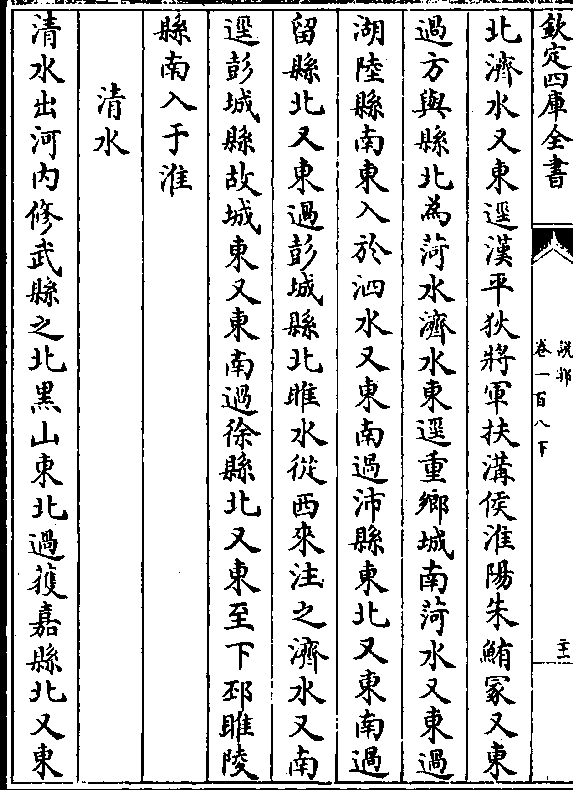 欽定四庫全書
說郛
卷一百八下
二十二
北濟水又東逕漢平狄將軍扶溝侯淮陽朱鮪冢又東
過方與縣北為菏水濟水東逕重鄉城南菏水又東過
湖陸縣南東入於泗水又東南過沛縣東北又東南過
留縣北又東過彭城縣北睢水從西來注之濟水又南
逕彭城縣故城東又東南過徐縣北又東至下邳睢陵
縣南入于淮
清水
清水出河內修武縣之北黑山東北過獲嘉縣北又東